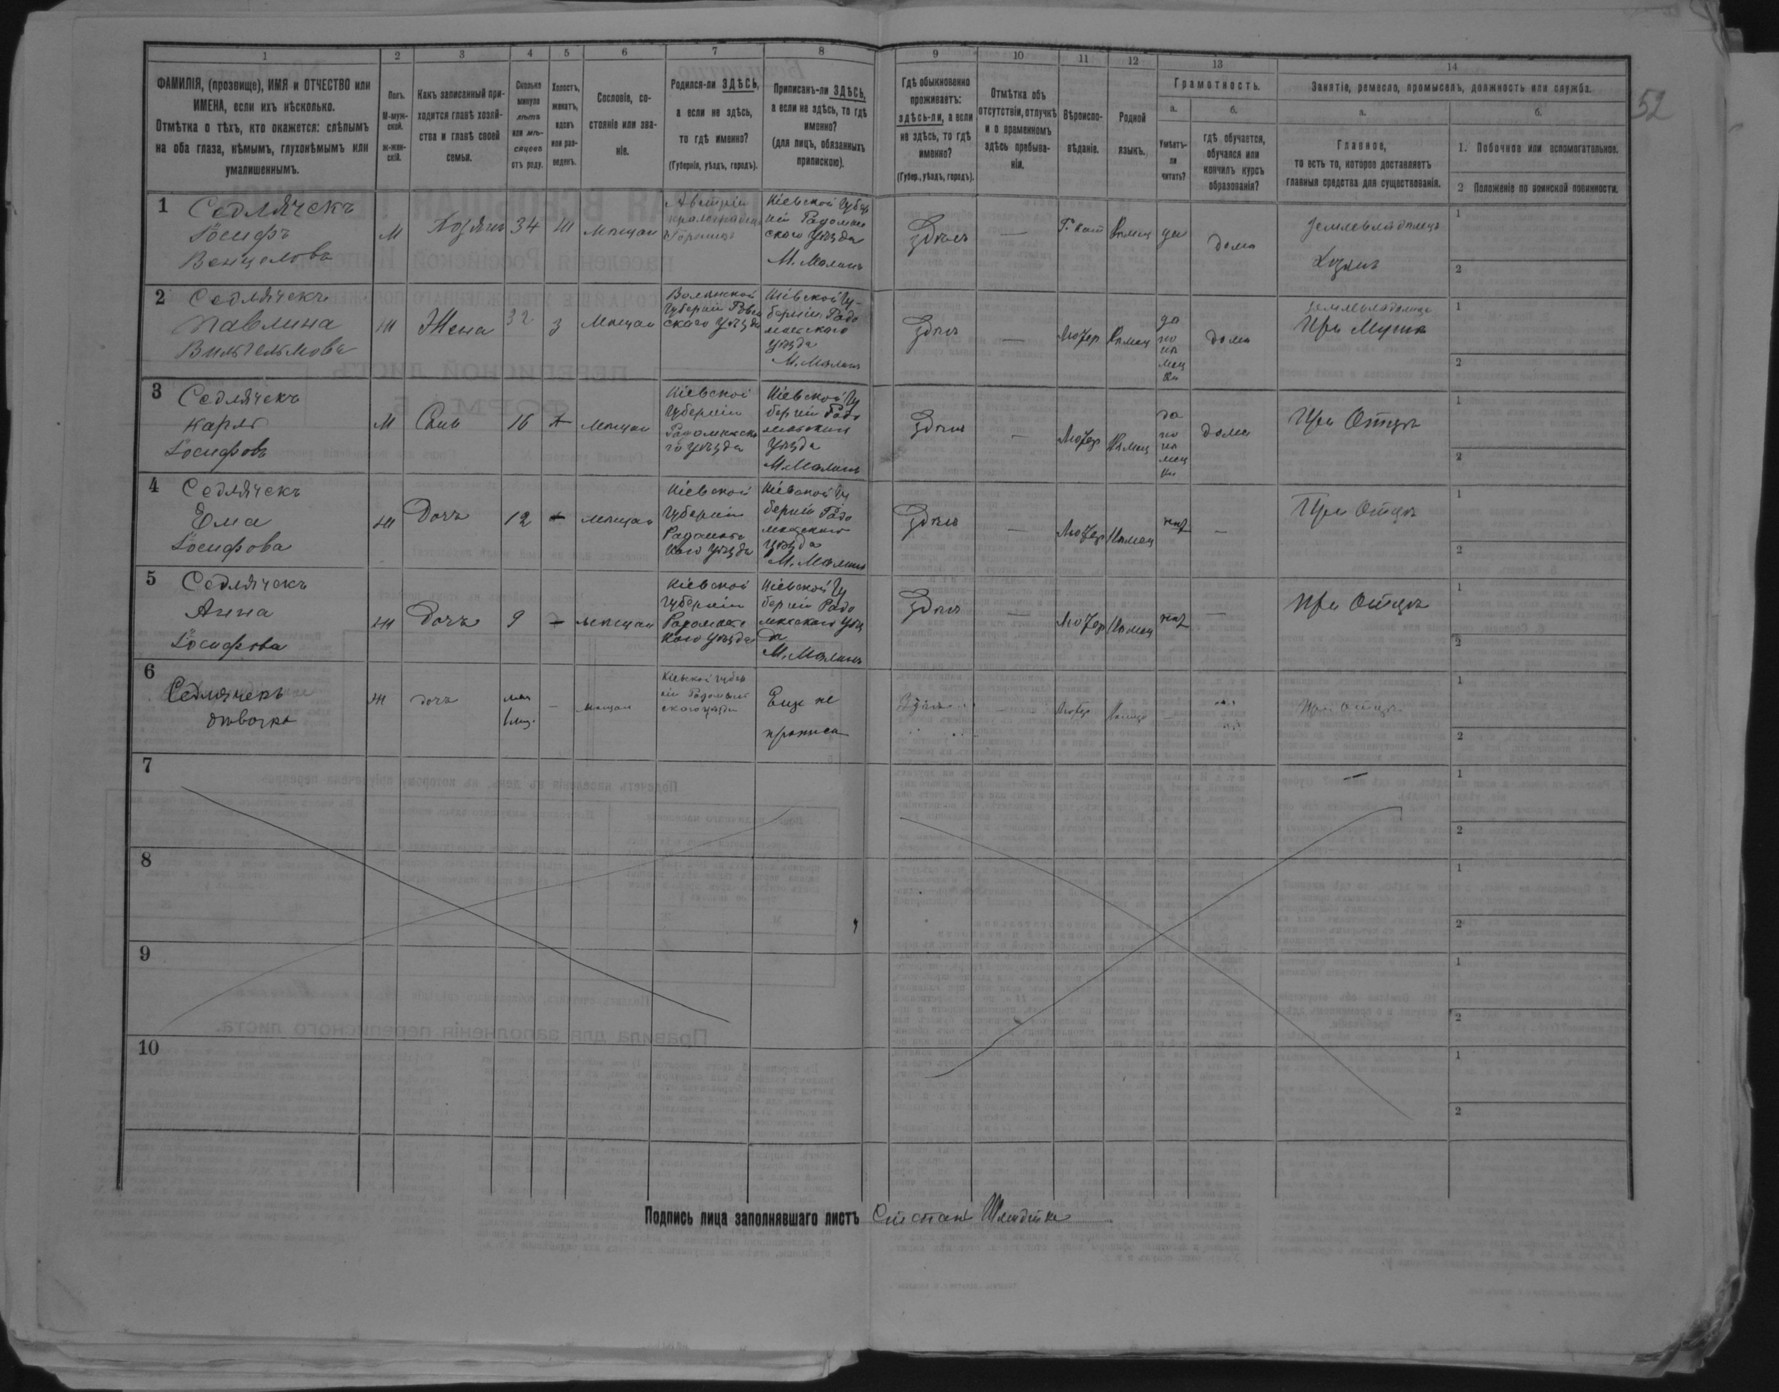 52
1 2 3 4 5 6 7 8 9 10 11 12 13 14
ФАМИЛІЯ, (прозвище), ИМЯ и ОТЧЕСТВО или
ИМЕНА, если ихъ нѣсколько.
Отмѣтка о тѣхъ, кто окажется: слѣпымъ
на оба глаза, нѣмымъ, глухонѣмымъ или
умалишеннымъ.
Полъ.
М-муж-
ской.
Ж-жен-
скій.
Какъ записанный при-
ходится главѣ хозяй-
ства и главѣ своей
семьи.
Сколько
минуло
лѣтъ
или мѣ-
сяцевъ
отъ роду.
Холостъ,
женатъ,
вдовъ
или раз-
веденъ.
Сословіе, со-
стояніе или зва-
ніе.
Родился-ли ЗДѢСЬ,
а если не здѣсь,
то гдѣ именно?
(Губернія, уѣздъ, городъ).
Приписанъ-ли ЗДѢСЬ,
а если не здѣсь, то гдѣ
именно?
(для лицъ, обязанныхъ
припискою).
Гдѣ обыкновенно
проживаетъ:
здѣсь-ли, а если
не здѣсь, то гдѣ
именно?
(Губер., уѣздъ, городъ).
Отмѣтка объ
отсутствіи, отлучкѣ
и о временномъ
здѣсь пребыва-
ніи.
Вѣроиспо-
вѣданіе.
Родной
языкъ.
Грамотность.
а.
Умѣетъ-
ли
читать?
б.
гдѣ обучается,
обучался или
кончилъ курсъ
образованія?
Занятіе, ремесло, промыселъ, должность или служба.
а.
Главное,
то есть то, которое доставляетъ
главныя средства для существованія.
б.
1. Побочное или вспомогательное.
2 Положеніе по воинской повинности.
1
Седлячекъ
Іосифъ
Венцеловъ
М
Хозяинъ
34
Ж
Мѣщан
Кіевской Губер
ніи Радомы
ского Уѣзда
М. Малинъ
Здѣсь
—
Р. Кат
Нѣмец
да
дома
Землевладѣлецъ
Хозяинъ
1
2
2
Седлячекъ
Павлина
Вильгельмова
Ж
Жена
32
З
Мѣщан
Волынской
Губерніи Ровен
ского Уѣзда
Кіевской Гу-
берніи Радо
мысского
Уѣзда
М. Малинъ
Здѣсь
—
Лютер
Нѣмец
да
по
нѣ
мец
ки
дома
При Мужѣ
1
2
3
Седлячекъ
Карлъ
Іосифовъ
М
Сынъ
16
Х
Мѣщан
Кіевской
Губерніи
Радомысско
го Уѣзда
Кіевской Гу
берніи Радо
мысского
Уѣзда
М. Малинъ
Здѣсь
—
Лютер
Нѣмец
да
по
нѣ
мец
ки
дома
При Отцѣ
1
2
4
Седлячекъ
Ема
Іосифова
Ж
Дочъ
12
мѣщан
Кіевской
Губерніи
Радомысс
кого Уѣзда
Кіевской Гу
берніи Радо
мысского
Уѣзда
М. Малинъ
Здѣсь
—
Лютер
Нѣмец
нѣт
—
При Отцѣ
1
2
5
Седлячекъ
Анна
Іосифова
Ж
Дочъ
9
мѣщан
Кіевской
Губерніи
Радомысс
кого Уѣзда
Кіевской Гу
берніи Радо
мысского Уѣз
да
М. Малинъ
Здѣсь
—
Лютер
Нѣмец
нѣт
—
При Отцѣ
1
2
6
Седлячекъ
дѣвочка
Ж
дочъ
—
мѣщан
Кіевской Губер
ніи Радомыс
ского уѣзда
Еще не
прописа
Здѣсь
Лютер
При отцѣ
1
2
7
—
1
2
8
1
2
9
1
2
10
1
2
Подпись лица заполнявшаго листъ